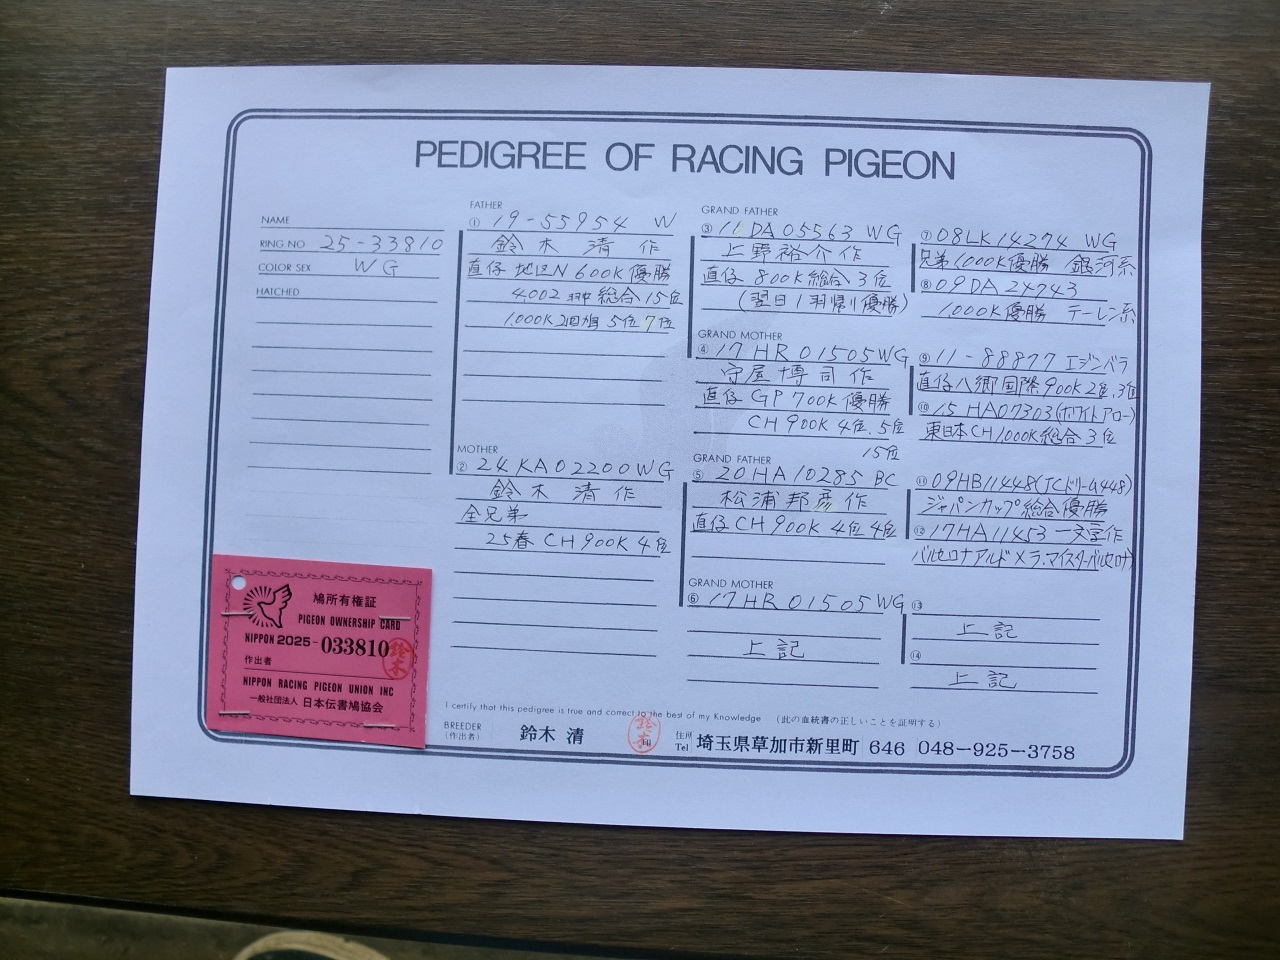 PEDIGREE OF RACING PIGEON
NAME
RING NO 25-33810
COLOR SEX WG
HATCHED
FATHER
① 19-55954 W
鈴木 清 作
直仔 地区N 600K 優勝
4002羽中 総合15位
1,000K 2回 5位 7位
MOTHER
② 24KA02200WG
鈴木 清 作
全兄弟
25春 CH900K 4位
GRAND FATHER
③ 11DA05563 WG
上野裕介作
直仔 800K総合 3位
(翌日1羽帰り優勝)
GRAND MOTHER
④ 17HR01505WG
守屋博司作
直仔 GP700K優勝
CH900K 4位.5位
15位
GRAND FATHER
⑤ 20HA10285 BC
松浦邦彦作
直仔CH900K 4位 4位
GRAND MOTHER
⑥ 17HR01505WG
上記
⑦ 08LK14274 WG
兄弟1000K優勝 銀河系
⑧ 09DA24743
1,000K優勝 テーレン系
⑨ 11-88877 エジンバラ
直仔八郷国際900K2位.3位
⑩ 15HA07303(ホワイトアロー)
東日本CH1,000K総合3位
⑪ 09HB11448(JCドリーム448)
ジャパンカップ総合優勝
⑫ 17HA11453 一文字作
バルセロナアルド×ラ.マイスターバルセロナ
⑬
上記
⑭
上記
鳩所有権証
PIGEON OWNERSHIP CARD
NIPPON 2025-033810
作出者
NIPPON RACING PIGEON UNION INC
一般社団法人 日本伝書鳩協会
鈴木
I certify that this pedigree is true and correct to the best of my Knowledge (此の血統書の正しいことを証明する)
BREEDER
(作出者)
鈴木 清
鈴木
印
住所
Tel
埼玉県草加市新里町 646 048-925-3758